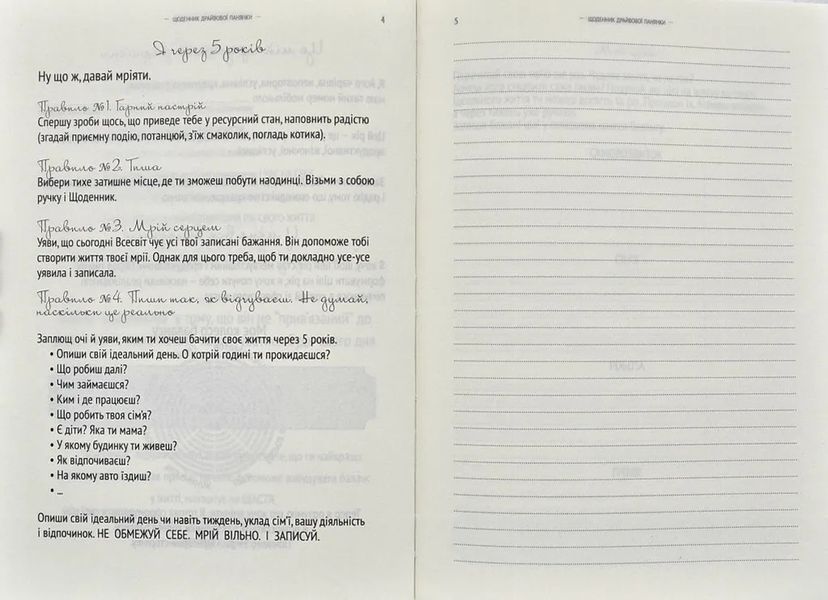 — ЩОДЕННИК ДРАЙВОВОЇ ПАНЯНКИ —
4
Я через 5 років
Ну що ж, давай мріяти.
Правило №1. Гарний настрій
Спершу зроби щось, що приведе тебе у ресурсний стан, наповнить радістю
(згадай приємну подію, потанцюй, з'їж смаколик, погладь котика).
Правило №2. Тиша
Вибери тихе затишне місце, де ти зможеш побути наодинці. Візьми з собою
ручку і Щоденник.
Правило №3. Мрій серцем
Уяви, що сьогодні Всесвіт чує усі твої записані бажання. Він допоможе тобі
створити життя твоєї мрії. Однак для цього треба, щоб ти докладно усе-усе
уявила і записала.
Правило №4. Пиши так, як відчуваєш. Не думай,
наскільки це реально
Заплющ очі й уяви, яким ти хочеш бачити своє життя через 5 років.
• Опиши свій ідеальний день. О котрій годині ти прокидаєшся?
• Що робиш далі?
• Чим займаєшся?
• Ким і де працюєш?
• Що робить твоя сім'я?
• Є діти? Яка ти мама?
• У якому будинку ти живеш?
• Як відпочиваєш?
• На якому авто їздиш?
• ...
Опиши свій ідеальний день чи навіть тиждень, уклад сім'ї, вашу діяльність
і відпочинок. НЕ ОБМЕЖУЙ СЕБЕ. МРІЙ ВІЛЬНО. І ЗАПИСУЙ.
5
— ЩОДЕННИК ДРАЙВОВОЇ ПАНЯНКИ —